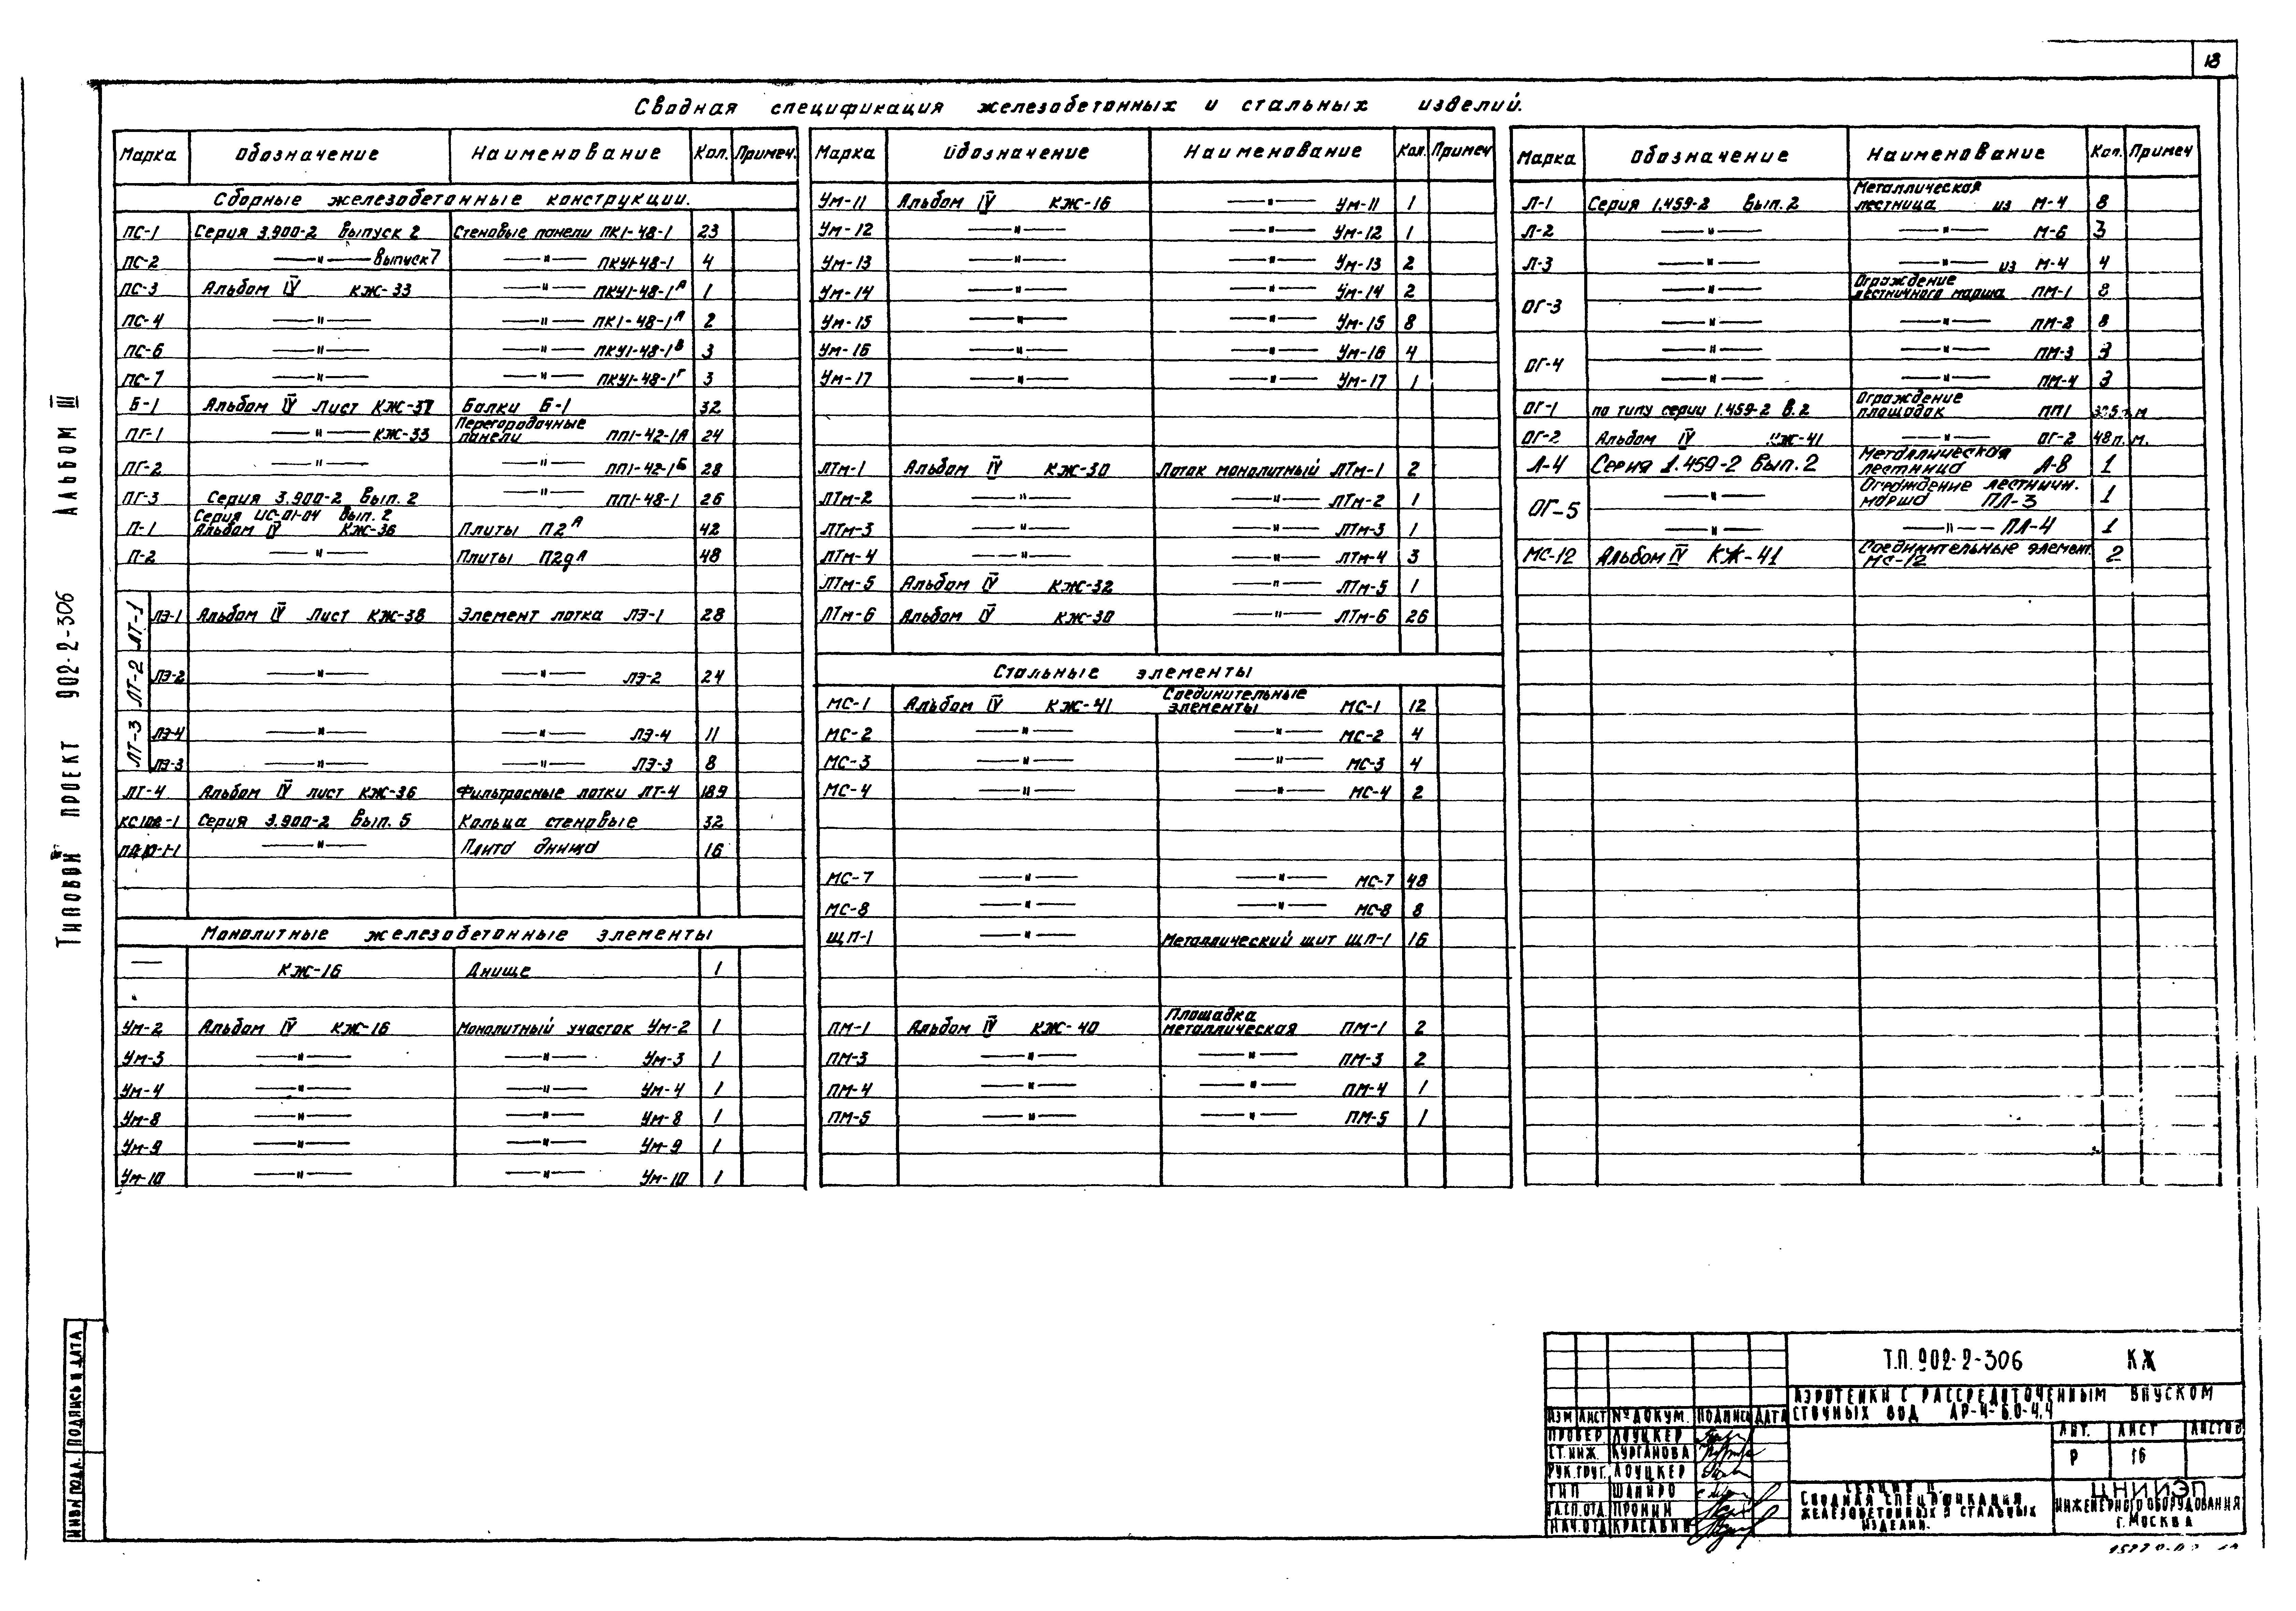 18
Сводная спецификация железобетонных и стальных изделий.
Марка Обозначение Наименование Кол. Примеч.
Сборные железобетонные конструкции.
ПС-1 Серия 3.900-2 Выпуск 2 Стеновые панели ПК1-48-1 23
ПС-2 —〃— Выпуск 7 —〃— ПКУ1-48-1 4
ПС-3 Альбом IV КЖ-33 —〃— ПКУ1-48-1А 1
ПС-4 —〃— —〃— ПК1-48-1А 2
ПС-6 —〃— —〃— ПКУ1-48-1В 3
ПС-7 —〃— —〃— ПКУ1-48-1Г 3
Б-1 Альбом IV Лист КЖ-37 Балки Б-1 32
ПГ-1 —〃— КЖ-33 Перегородочные панели ПП1-42-1А 24
ПГ-2 —〃— —〃— ПП1-42-1Б 28
ПГ-3 Серия 3.900-2 Вып. 2 —〃— ПП1-48-1 26
П-1 Серия ИС-01-04 Вып. 2 Альбом IV КЖ-36 Плиты П2А 42
П-2 —〃— Плиты П2дА 48
ЛТ-1 ЛЭ-1 Альбом IV Лист КЖ-38 Элемент лотка ЛЭ-1 28
ЛТ-2 ЛЭ-2 —〃— —〃— ЛЭ-2 24
ЛТ-3 ЛЭ-4 —〃— —〃— ЛЭ-4 11
ЛЭ-3 —〃— —〃— ЛЭ-3 8
ЛТ-4 Альбом IV лист КЖ-36 Фильтросные лотки ЛТ-4 189
Серия 3.900-2 Вып. 5 Кольца стеновые 32
—〃— Плита днища 16
Монолитные железобетонные элементы
— КЖ-16 Днище 1
Ум-2 Альбом IV КЖ-16 Монолитный участок Ум-2 1
Ум-3 —〃— —〃— Ум-3 1
Ум-4 —〃— —〃— Ум-4 1
Ум-8 —〃— —〃— Ум-8 1
Ум-9 —〃— —〃— Ум-9 1
Ум-10 —〃— —〃— Ум-10 1
Марка Обозначение Наименование Кол. Примеч
Ум-11 Альбом IV КЖ-16 —〃— Ум-11 1
Ум-12 —〃— —〃— Ум-12 1
Ум-13 —〃— —〃— Ум-13 2
Ум-14 —〃— —〃— Ум-14 2
Ум-15 —〃— —〃— Ум-15 8
Ум-16 —〃— —〃— Ум-16 4
Ум-17 —〃— —〃— Ум-17 1
ЛТм-1 Альбом IV КЖ-30 Лоток монолитный ЛТм-1 2
ЛТм-2 —〃— —〃— ЛТм-2 1
ЛТм-3 —〃— —〃— ЛТм-3 1
ЛТм-4 —〃— —〃— ЛТм-4 3
ЛТм-5 Альбом IV КЖ-32 —〃— ЛТм-5 1
ЛТм-6 Альбом IV КЖ-30 —〃— ЛТм-6 26
Стальные элементы
МС-1 Альбом IV КЖ-41 Соединительные элементы МС-1 12
МС-2 —〃— —〃— МС-2 4
МС-3 —〃— —〃— МС-3 4
МС-4 —〃— —〃— МС-4 2
МС-7 —〃— —〃— МС-7 48
МС-8 —〃— —〃— МС-8 8
ЩП-1 —〃— Металлический щит ЩП-1 16
ПМ-1 Альбом IV КЖ-40 Площадка металлическая ПМ-1 2
ПМ-3 —〃— —〃— ПМ-3 2
ПМ-4 —〃— —〃— ПМ-4 1
ПМ-5 —〃— —〃— ПМ-5 1
Марка Обозначение Наименование Кол. Примеч
Л-1 Серия 1.459-2 Вып. 2 Металлическая лестница из М-4 8
Л-2 —〃— —〃— М-6 3
Л-3 —〃— —〃— из М-4 4
ОГ-3 —〃— Ограждение лестничного марша ПМ-1 8
—〃— —〃— ПМ-2 8
ОГ-4 —〃— —〃— ПМ-3 3
—〃— —〃— ПМ-4 3
ОГ-1 по типу серии 1.459-2 В. 2 Ограждение площадок ПП1 м
ОГ-2 Альбом IV КЖ-41 —〃— ОГ-2 48п.м.
Л-4 Серия 1.459-2 Вып. 2 Металлическая лестница Л-8 1
ОГ-5 —〃— Ограждение лестничн. марша ПЛ-3 1
—〃— —〃— ПЛ-4 1
МС-12 Альбом IV КЖ-41 Соединительные элемент. МС-12 2
Типовой проект 902-2-306 Альбом III
Инв № подл. Подпись и дата
Т.П. 902-2-306 КЖ
Аэротенки с рассредоточенным впуском
сточных вод АР-4-6.0-4,4
Изм Лист № докум. Подпись Дата
Провер Лоуцкер
Ст. инж. Курганова
Рук. груп. Лоуцкер
ГИП Шапиро
Гл.сп.отд. Пронин
Нач. отд Красавин
Лит. Лист Листов
Р 16
Секция II.
Сводная спецификация
железобетонных и стальных
изделий.
ЦНИИЭП
инженерного оборудования
г. Москва